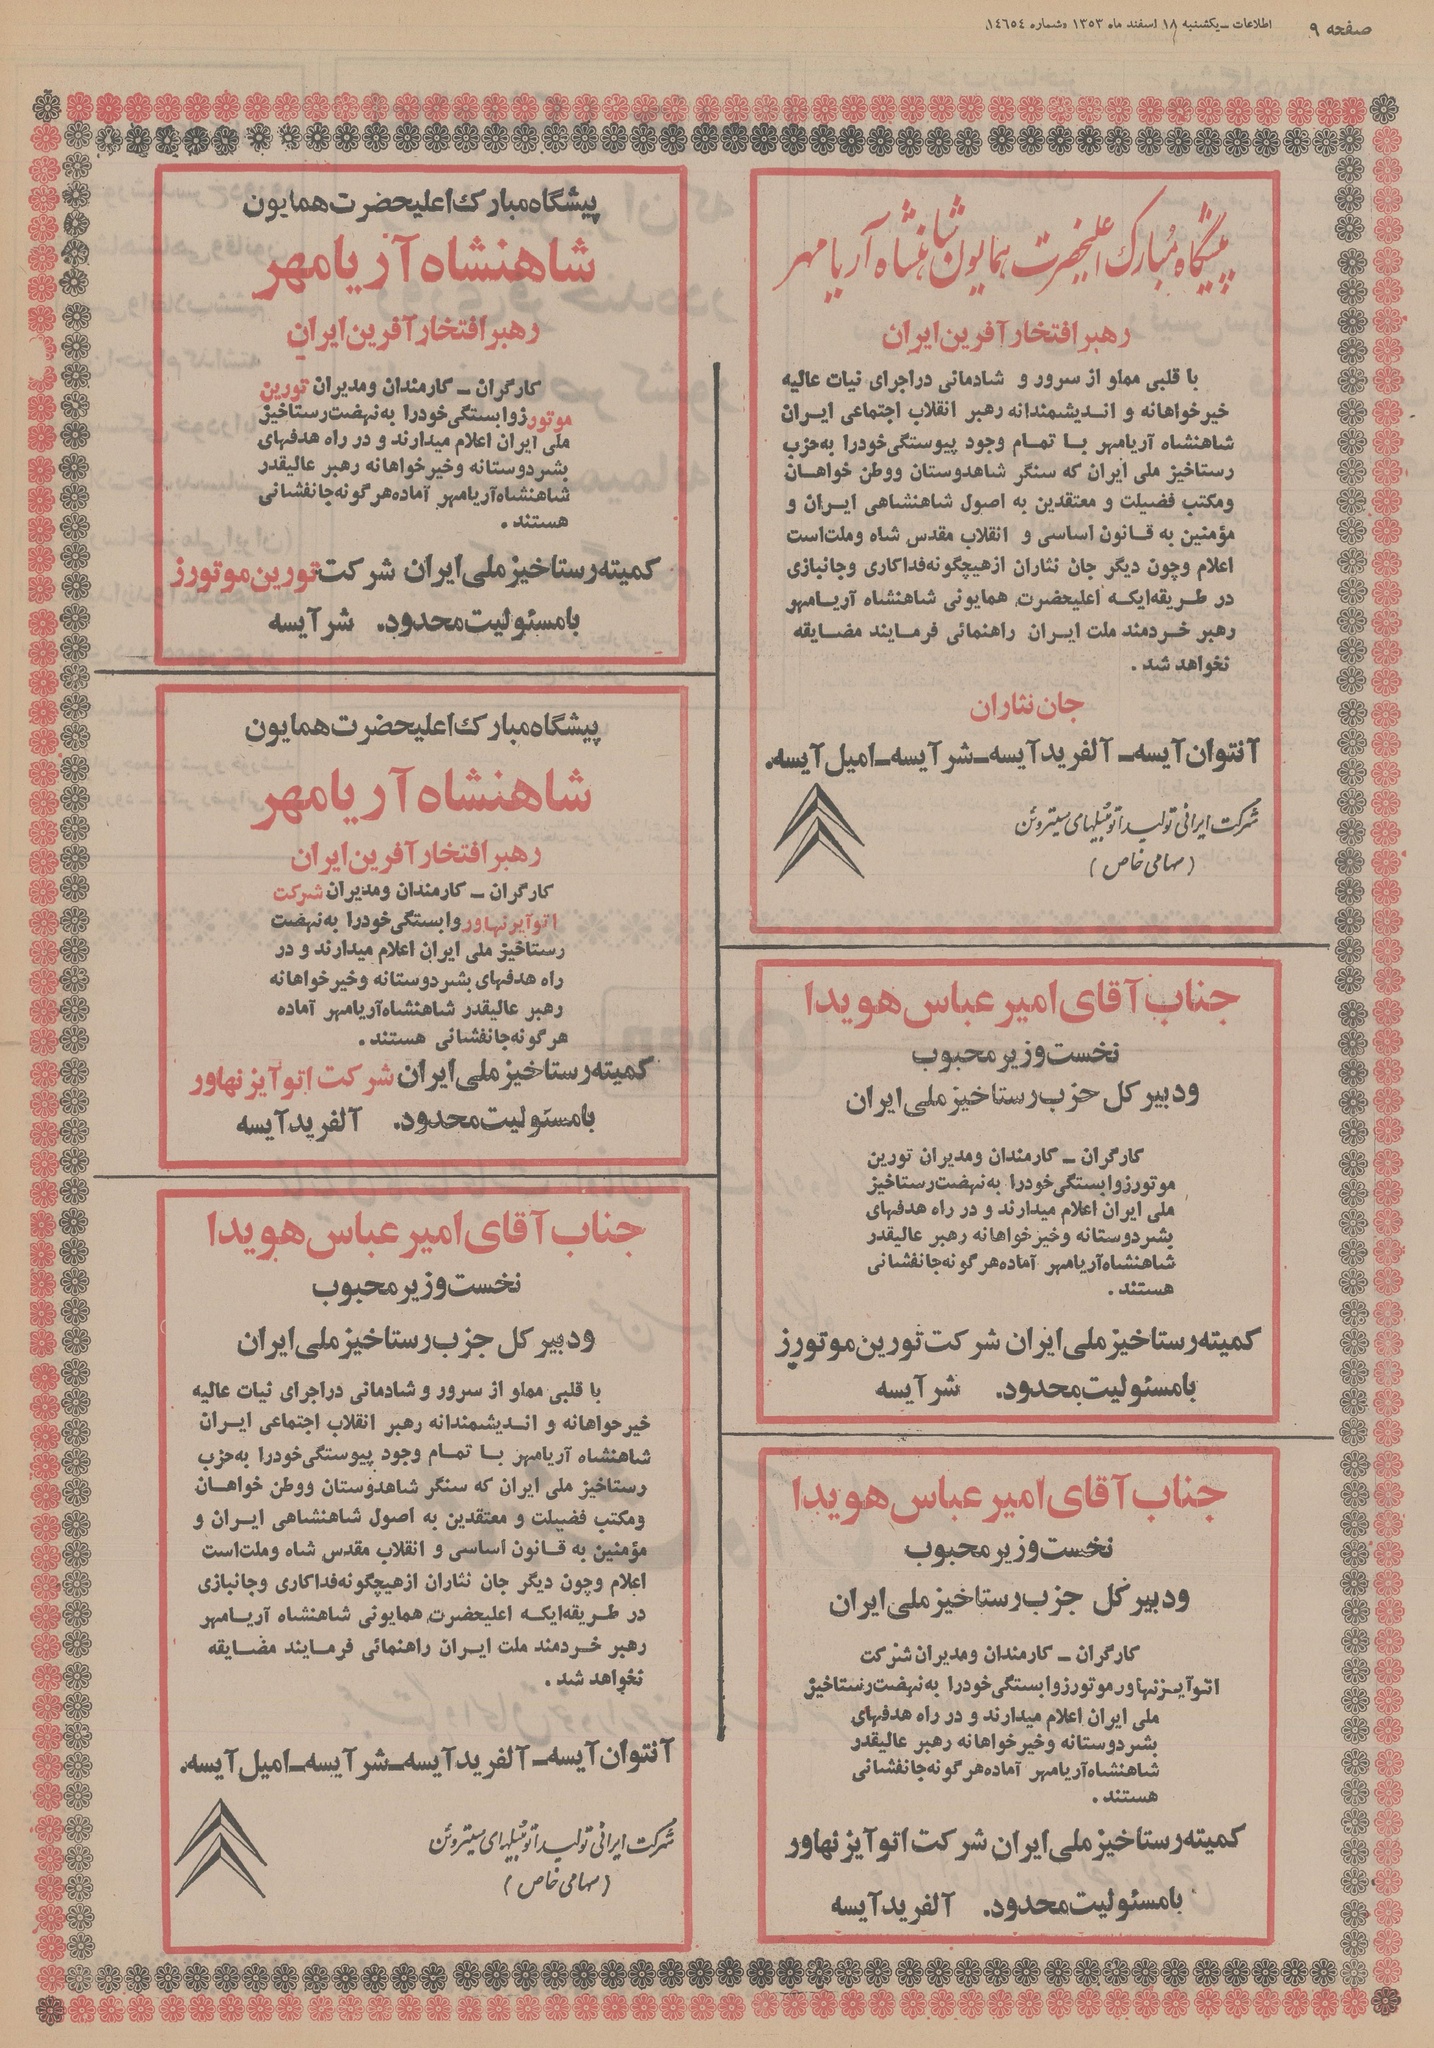 صفحه ۹
اطلاعات ـ یکشنبه ۱۸ اسفند ماه ۱۳۵۳ شماره ۱٤٦٥٤
پیشگاه مبارک اعلیحضرت همایون شاهنشاه آریامهر
رهبر افتخار آفرین ایران
با قلبی مملو از سرور و شادمانی در اجرای نیات عالیه
خیرخواهانه و اندیشمندانه رهبر انقلاب اجتماعی ایران
شاهنشاه آریامهر با تمام وجود پیوستگی خودرا به حزب
رستاخیز ملی ایران که سنگر شاهدوستان ووطن خواهان
ومکتب فضیلت و معتقدین به اصول شاهنشاهی ایران و
مؤمنین به قانون اساسی و انقلاب مقدس شاه وملت است
اعلام وچون دیگر جان نثاران ازهیچگونه فداکاری وجانبازی
در طریقه ایکه اعلیحضرت همایونی شاهنشاه آریامهر
رهبر خردمند ملت ایران راهنمائی فرمایند مضایقه
نخواهد شد .
جان نثاران
آنتوان آیسه ـ آلفرید آیسه ـ شر آیسه ـ امیل آیسه.
شرکت ایرانی تولید اتومبیلهای سیتروئن
(سهامی خاص)
جناب آقای امیر عباس هویدا
نخست وزیر محبوب
ودبیر کل حزب رستاخیز ملی ایران
کارگران ـ کارمندان ومدیران تورین
موتورز وابستگی خودرا به نهضت رستاخیز
ملی ایران اعلام میدارند و در راه هدفهای
بشر دوستانه وخیرخواهانه رهبر عالیقدر
شاهنشاه آریامهر آماده هر گونه جانفشانی
هستند .
کمیته رستاخیز ملی ایران شرکت تورین موتورز
با مسئولیت محدود. شر آیسه
جناب آقای امیر عباس هویدا
نخست وزیر محبوب
ودبیر کل حزب رستاخیز ملی ایران
کارگران ـ کارمندان ومدیران شرکت
اتو آیز نهاور موتورز وابستگی خودرا به نهضت رستاخیز
ملی ایران اعلام میدارند و در راه هدفهای
بشر دوستانه وخیرخواهانه رهبر عالیقدر
شاهنشاه آریامهر آماده هر گونه جانفشانی
هستند .
کمیته رستاخیز ملی ایران شرکت اتو آیز نهاور
با مسئولیت محدود. آلفرید آیسه
پیشگاه مبارک اعلیحضرت همایون
شاهنشاه آریامهر
رهبر افتخار آفرین ایران
کارگران ـ کارمندان ومدیران تورین
موتورز وابستگی خودرا به نهضت رستاخیز
ملی ایران اعلام میدارند و در راه هدفهای
بشر دوستانه وخیرخواهانه رهبر عالیقدر
شاهنشاه آریامهر آماده هر گونه جانفشانی
هستند .
کمیته رستاخیز ملی ایران شرکت تورین موتورز
با مسئولیت محدود. شر آیسه
پیشگاه مبارک اعلیحضرت همایون
شاهنشاه آریامهر
رهبر افتخار آفرین ایران
کارگران ـ کارمندان ومدیران شرکت
اتو آیز نهاور وابستگی خودرا به نهضت
رستاخیز ملی ایران اعلام میدارند و در
راه هدفهای بشر دوستانه وخیرخواهانه
رهبر عالیقدر شاهنشاه آریامهر آماده
هر گونه جانفشانی هستند .
کمیته رستاخیز ملی ایران شرکت اتو آیز نهاور
با مسئولیت محدود. آلفرید آیسه
جناب آقای امیر عباس هویدا
نخست وزیر محبوب
ودبیر کل حزب رستاخیز ملی ایران
با قلبی مملو از سرور و شادمانی در اجرای نیات عالیه
خیرخواهانه و اندیشمندانه رهبر انقلاب اجتماعی ایران
شاهنشاه آریامهر با تمام وجود پیوستگی خودرا به حزب
رستاخیز ملی ایران که سنگر شاهدوستان ووطن خواهان
ومکتب فضیلت و معتقدین به اصول شاهنشاهی ایران و
مؤمنین به قانون اساسی و انقلاب مقدس شاه وملت است
اعلام وچون دیگر جان نثاران ازهیچگونه فداکاری وجانبازی
در طریقه ایکه اعلیحضرت همایونی شاهنشاه آریامهر
رهبر خردمند ملت ایران راهنمائی فرمایند مضایقه
نخواهد شد .
آنتوان آیسه ـ آلفرید آیسه ـ شر آیسه ـ امیل آیسه.
شرکت ایرانی تولید اتومبیلهای سیتروئن
(سهامی خاص)